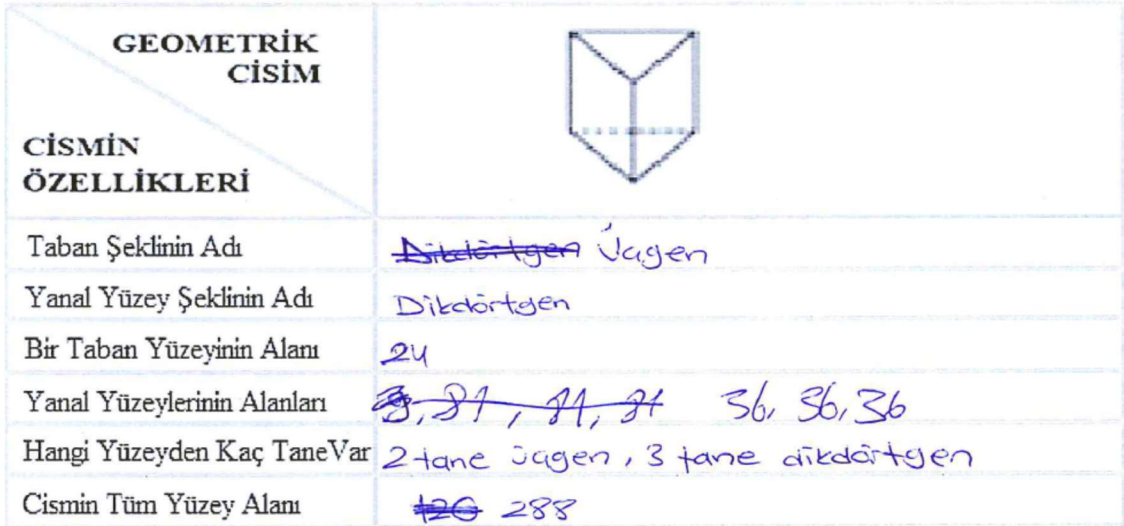 GEOMETRİK
CİSİM
CİSMİN
ÖZELLİKLERİ
Taban Şeklinin Adı Dikdörtgen Üçgen
Yanal Yüzey Şeklinin Adı Dikdörtgen
Bir Taban Yüzeyinin Alanı 24
Yanal Yüzeylerinin Alanları 36, 36, 36
Hangi Yüzeyden Kaç TaneVar 2 tane üçgen, 3 tane dikdörtgen
Cismin Tüm Yüzey Alanı 120 288